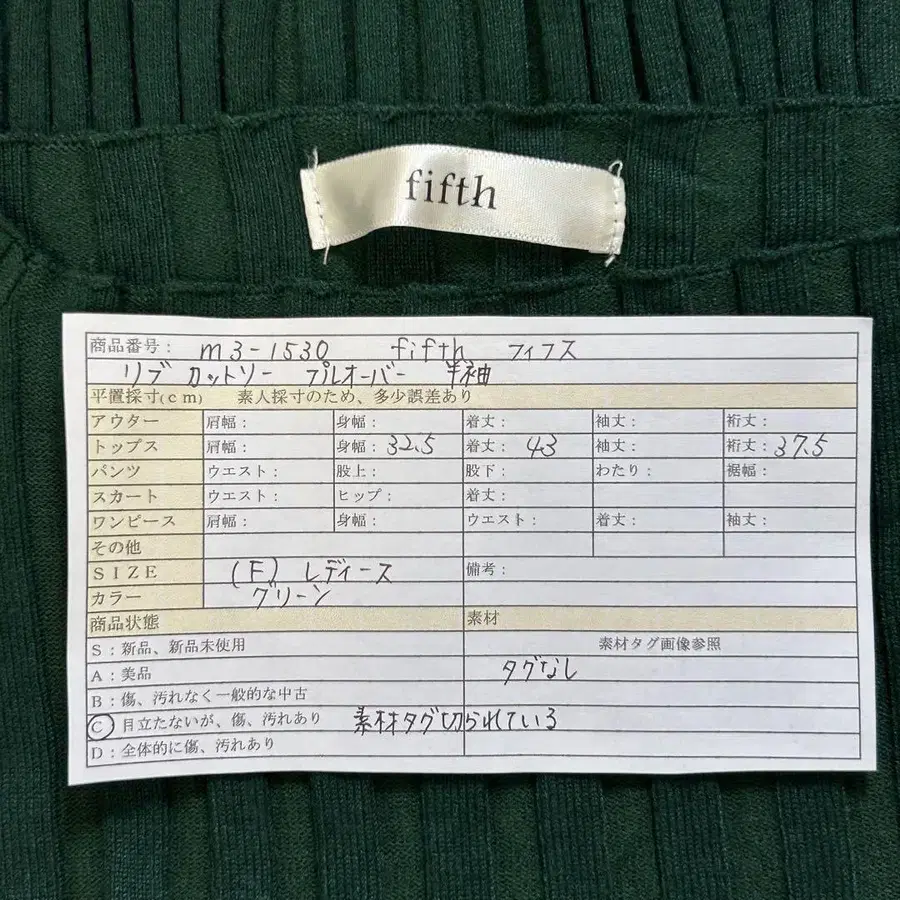 fifth
商品番号： m3-1530 fifth フィフス
リブ カットソー プルオーバー 半袖
平置採寸(cm) 素人採寸のため、多少誤差あり
アウター 肩幅： 身幅： 着丈： 袖丈： 裄丈：
トップス 肩幅： 身幅：32.5 着丈：43 袖丈： 裄丈：37.5
パンツ ウエスト： 股上： 股下： わたり： 裾幅：
スカート ウエスト： ヒップ： 着丈：
ワンピース 肩幅： 身幅： ウエスト： 着丈： 袖丈：
その他
SIZE (F) レディース 備考：
カラー グリーン
商品状態 素材
S：新品、新品未使用 素材タグ画像参照
A：美品 タグなし
B：傷、汚れなく一般的な中古
C：目立たないが、傷、汚れあり 素材タグ切られている
D：全体的に傷、汚れあり